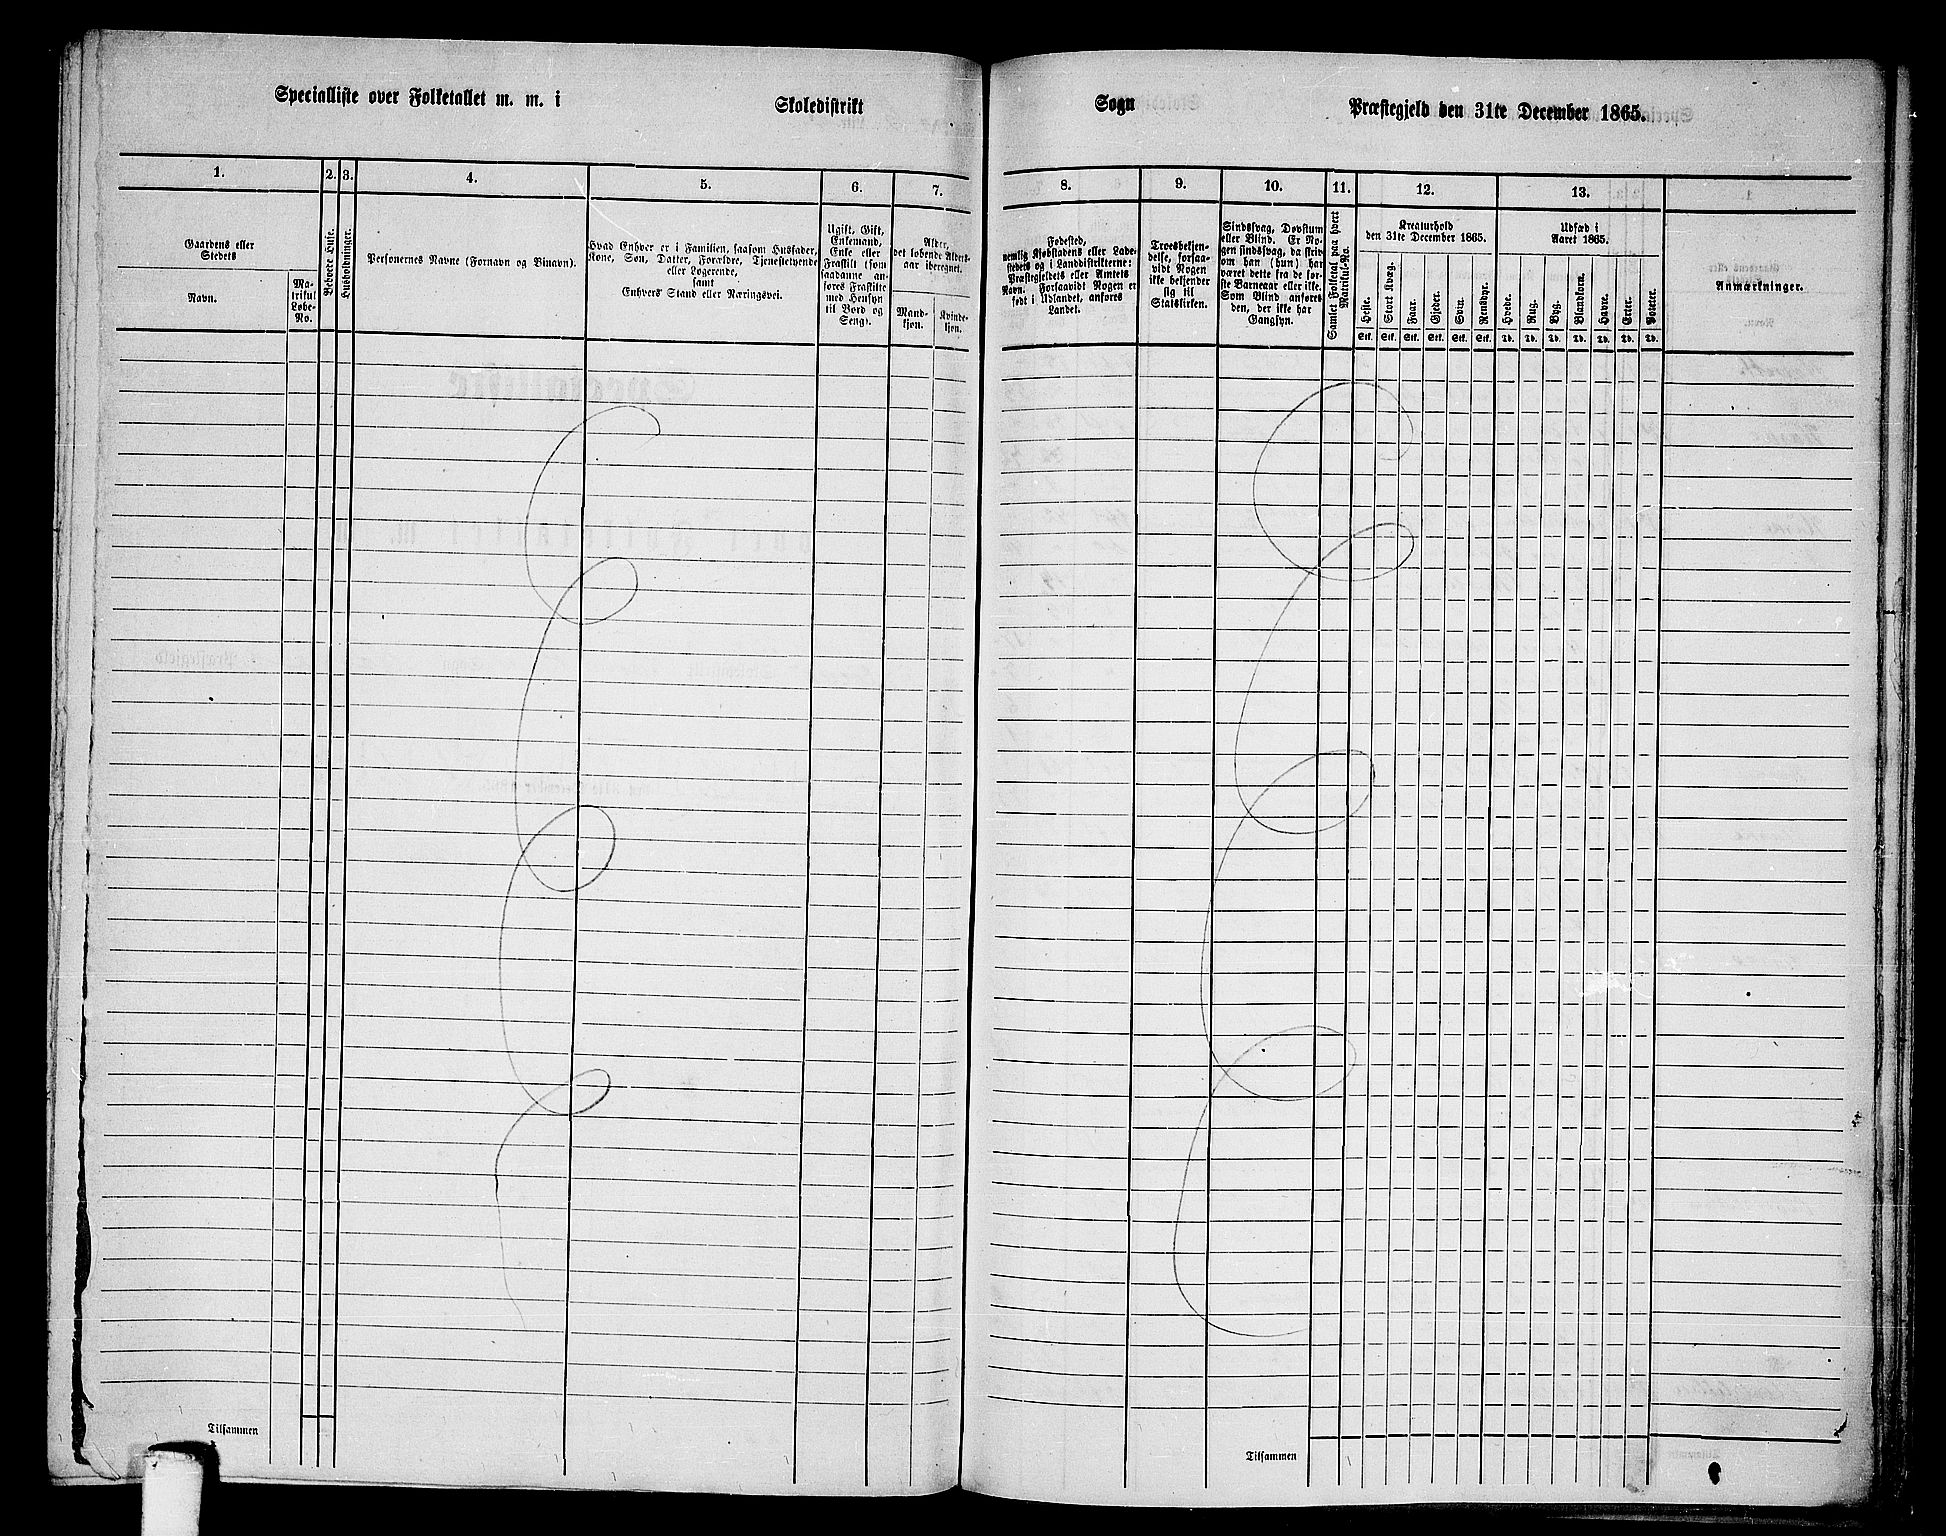 Specialliste over Folketallet m. m. i Skoledistrikt Sogn Præstegjeld den 31te December 1865.
1. 2. 3. 4. 5. 6. 7. 8. 9. 10. 11. 12. 13.
Gaardens eller
Stedets
Navn.
Ma-
trikul
Løbe-
No.
Beboede Huse.
Husholdninger.
Personernes Navne (Fornavn og Binavn).
Hvad Enhver er i Familien, saasom Husfader,
Kone, Søn, Datter, Forældre, Tjenestetyende
eller Logerende,
samt
Enhvers Stand eller Næringsvei.
Ugift, Gift,
Enkemand,
Enke eller
Fraskilt (som
saadanne an-
føres Fraskilte
med Hensyn
til Bord og
Seng).
Alder,
det løbende Alders-
aar iberegnet.
Mand-
kjøn.
Kvinde-
kjøn.
Fødested,
nemlig Kjøbstadens eller Lade-
stedets og i Landdistrikterne:
Præstegjeldets eller Amtets
Navn. Forsaavidt Nogen er
født i Udlandet, anføres
Landet.
Troesbekjen-
delse, forsaa-
vidt Nogen
ikke bekjender
sig til
Statskirken.
Sindssvag, Døvstum
eller Blind. Er No-
gen sindssvag, da striv
om han (hun) har
været dette fra de før-
ste Barneaar eller ikke.
Som Blind anføres
den, der ikke har
Gangsyn.
Samlet Folketal paa hvert
Matrikul-No.
Kreaturhold
den 31te December 1865.
Heste.
Stort Kvæg.
Faar.
Gjeder.
Svin.
Rensdyr.
Stk. Stk. Stk. Stk. Stk. Stk.
Udsæd i
Aaret 1865.
Hvede.
Rug.
Byg.
Blandkorn.
Havre.
Erter.
Poteter.
Td. Td. Td. Td. Td. Td. Td.
Anmærkninger.
Tilsammen
Tilsammen